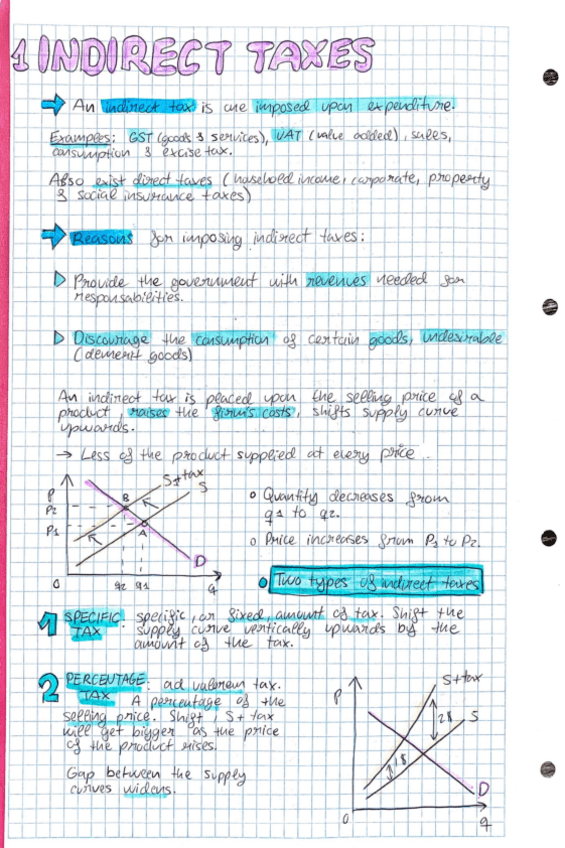 1 INDIRECT TAXES
An indirect tax is one imposed upon expenditure.
Examples: GST (goods & services), VAT (value added), sales,
consumption & excise tax.
Also exist direct taxes (household income, corporate, property
& social insurance taxes)
Reasons for imposing indirect taxes:
Provide the government with revenues needed for
responsabilities.
Discourage the consumption of certain goods, undesirable
(demerit goods)
An indirect tax is placed upon the selling price of a
product, raises the firm's costs, shifts supply curve
upwards.
→ Less of the product supplied at every price.
P
P2
P1
B
A
S+tax
S
D
0
q2 q1
q
Quantity decreases from
q1 to q2.
Price increases from P1 to P2.
Two types of indirect taxes
1 SPECIFIC TAX: specific, or fixed, amount of tax. Shift the
supply curve vertically upwards by the
amount of the tax.
2 PERCENTAGE TAX: ad valorem tax.
A percentage of the
selling price. Shift, S + tax
will get bigger as the price
of the product rises.
Gap between the supply
curves widens.
P
S+tax
S
2$
1$
D
0
q